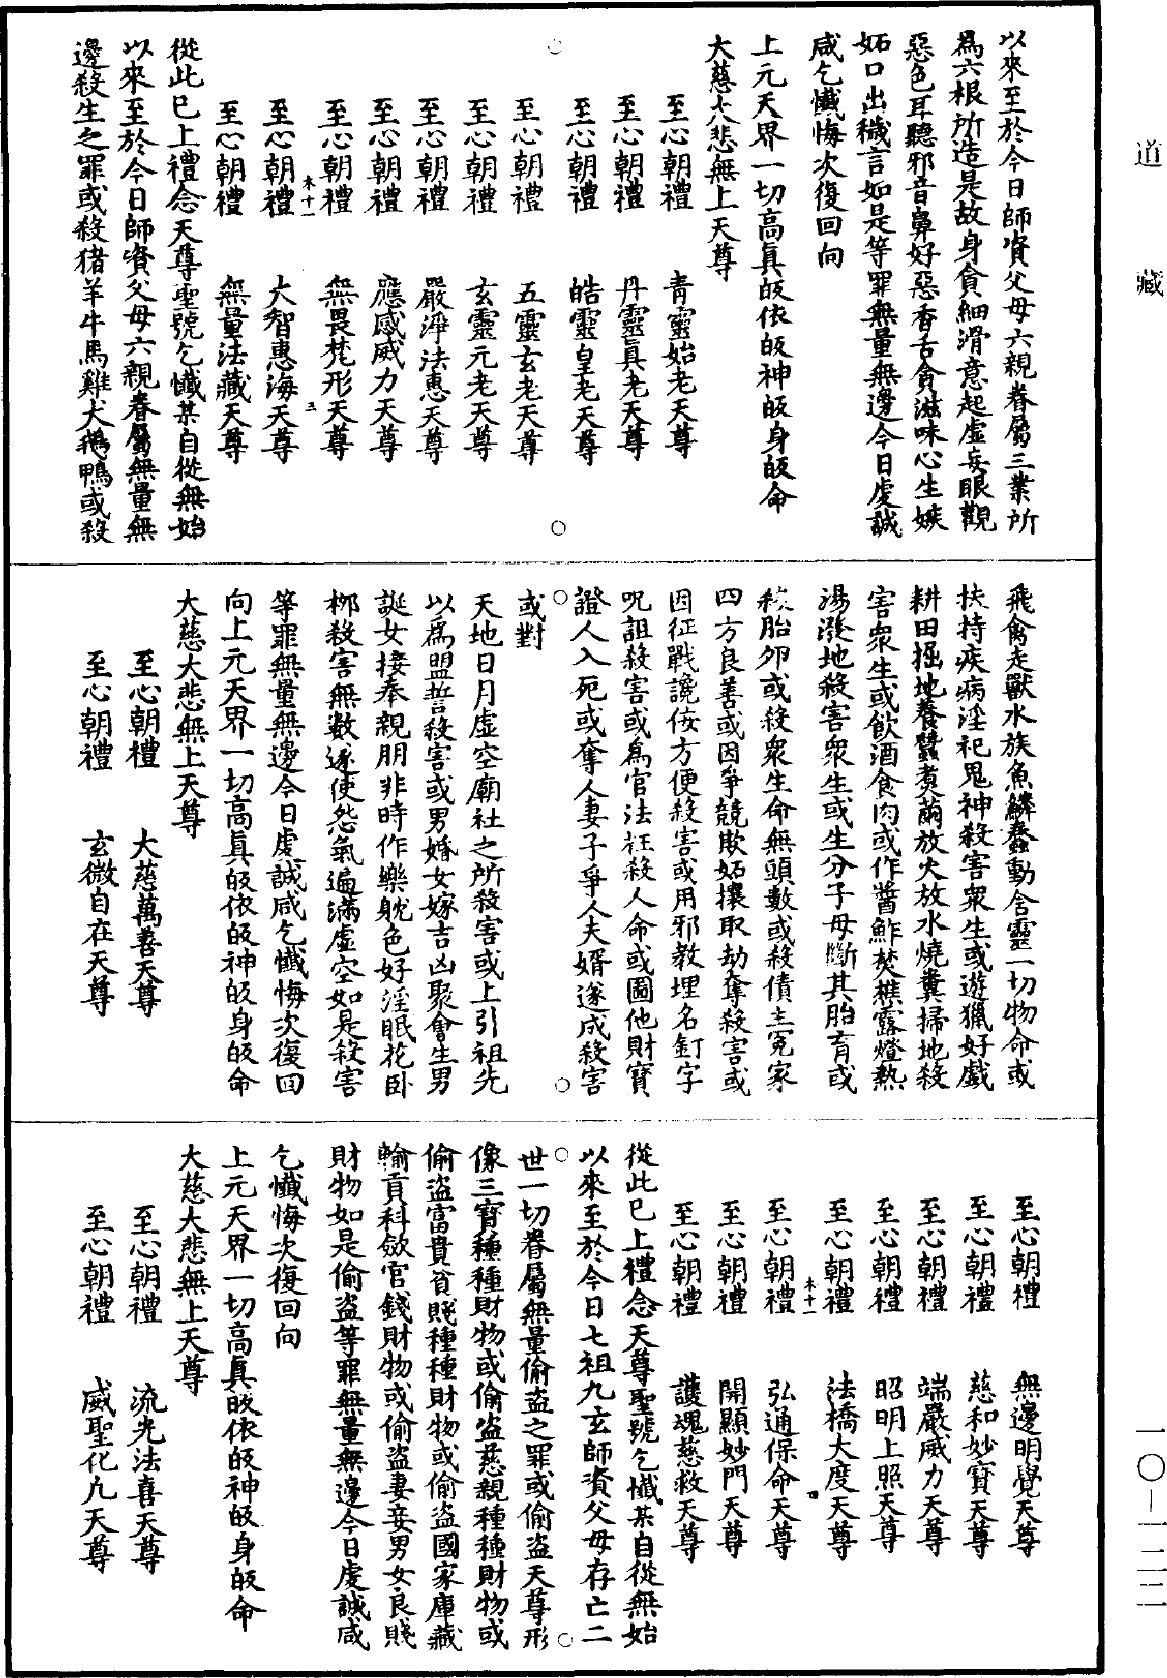 道藏
以來至於今日師資父母六親眷屬三業所
爲六根所造是故身貪細滑意起虛妄眼觀
惡色耳聽邪音鼻好惡香舌貪滋味心生嫉
妬口出穢言如是等罪無量無邊今日虔誠
咸乞懺悔次復回向
上元天界一切高眞皈依皈神皈身皈命
大慈大悲無上天尊
至心朝禮 青靈始老天尊
至心朝禮 丹靈眞老天尊
至心朝禮 皓靈皇老天尊
至心朝禮 五靈玄老天尊
至心朝禮 玄靈元老天尊
至心朝禮 嚴淨法惠天尊
至心朝禮 應感威力天尊
至心朝禮 無畏梵形天尊
至心朝禮 大智惠海天尊
至心朝禮 無量法藏天尊
從此已上禮念天尊聖號乞懺某自從無始
以來至於今日師資父母六親眷屬無量無
邊殺生之罪或殺猪羊牛馬雞犬鵝鴨或殺
飛禽走獸水族魚鱗蠢動含靈一切物命或
扶持疾病淫祀鬼神殺害衆生或遊獵好戲
耕田掘地養蠶煑繭放火放水燒糞掃地殺
害衆生或飲酒食肉或作醬鮓焚樵露燈熱
湯潑地殺害衆生或生分子母斷其胎育或
殺胎卵或殺衆生命無頭數或殺債主冤家
四方良善或因爭競欺妬攘取劫奪殺害或
因征戰讒侫方便殺害或用邪教埋名釘字
呪詛殺害或爲官法枉殺人命或圖他財寶
證人入死或奪人妻子爭人夫婿遂成殺害
或對
天地日月虛空廟社之所殺害或上引祖先
以爲盟誓殺害或男婚女嫁吉凶聚會生男
誕女接奉親朋非時作樂躭色好淫眠花臥
栁殺害無數遂使怨氣遍滿虛空如是殺害
等罪無量無邊今日虔誠咸乞懺悔次復回
向上元天界一切高眞皈依皈神皈身皈命
大慈大悲無上天尊
至心朝禮 大慈萬善天尊
至心朝禮 玄微自在天尊
至心朝禮 無邊明覺天尊
至心朝禮 慈和妙寶天尊
至心朝禮 端嚴威力天尊
至心朝禮 昭明上照天尊
至心朝禮 法橋大度天尊
至心朝禮 弘通保命天尊
至心朝禮 開顯妙門天尊
至心朝禮 護魂慈救天尊
從此已上禮念天尊聖號乞懺某自從無始
以來至於今日七祖九玄師資父母存亡二
世一切眷屬無量偷盜之罪或偷盜天尊形
像三寶種種財物或偷盜慈親種種財物或
偷盜富貴貧賤種種財物或偷盜國家庫藏
輸貢科歛官錢財物或偷盜妻妾男女良賤
財物如是偷盜等罪無量無邊今日虔誠咸
乞懺悔次復回向
上元天界一切高眞皈依皈神皈身皈命
大慈大悲無上天尊
至心朝禮 流光法喜天尊
至心朝禮 威聖化九天尊
一〇—一二二